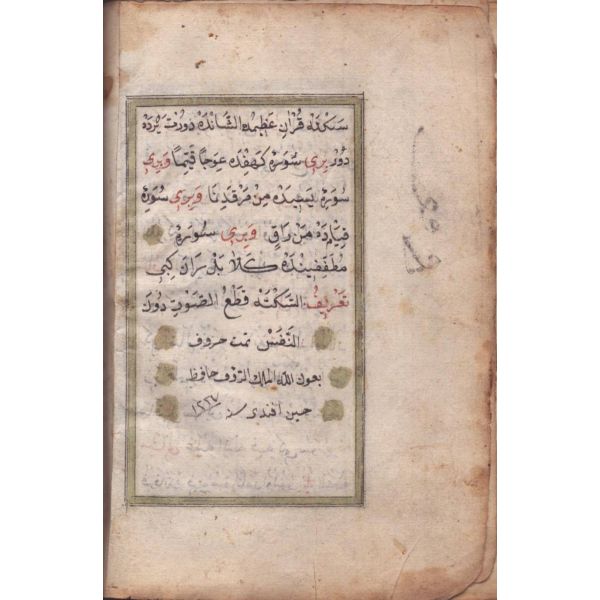 سَكْتَه قُرْاٰنِ عَظِيمُ الشَّانْدَه دُورْتْ يَرْدَه
دُرْ بِرِي سُورَۀِ كَهْفِدَه عِوَجًا قَيِّمًا وَبِرِي
سُورَۀِ يٰسِيدَه مِنْ مَرْقَدِنَا وَبِرِي سُورَۀِ
قِيَامَه دَه مَنْ رَاقٍ وَبِرِي سُورَۀِ
مُطَفِّفِينْدَه كَلَّا بَلْ رَانَ كِبِي
تَعْرِيفُ السَّكْتَه قَطْعُ الصَّوْتِ دُونَ
النَّفَسْ تمت حروف
بعون الله الملك الرؤف حافظ
حسين افندى سنه